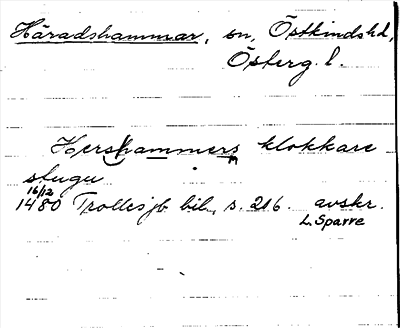 Häradshammar, sn, Östkinds hd,
Österg. l.
Hershammers klokkare
stugu
16/12
1480 Trolles jb bil, s. 216. avskr.
L. Sparre